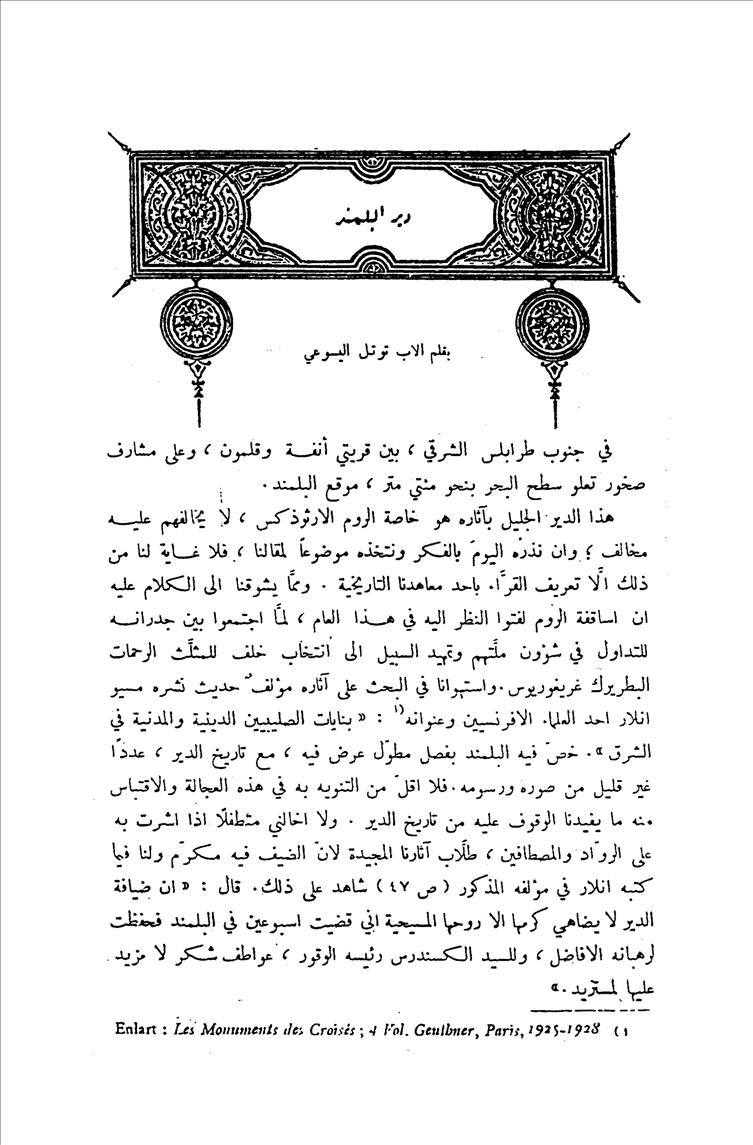 دير البلمند
بقلم الاب توتل اليسوعي
في جنوب طرابلس الشرقي ، بين قريتي أنفـة وقلمون ، وعلى مشارف
صخور تعلو سطح البحر بنحو مئتي متر ، موقع البلمند .
هذا الدير الجليل بآثاره هو خاصة الروم الارثوذكس ، لا يخالفهم عليـه
مخالف ؛ وان نذره اليومَ بالفكر ونتخذه موضوعاً لمقالنا ، فلا غـاية لنا من
ذلك الَّا تعريف القرَّاء باحد معاهدنا التاريخية . وممَّا يشوقنا الى الكلام عليه
ان اساقفة الروم لفتوا النظر اليه في هـذا العام ، لمَّا اجتمعوا بين جدرانـه
للتداول في شؤون ملَّتهم وتمهيد السبيل الى انتخاب خلف للمثلَّث الرحمات
البطريرك غريغوريوس . واستهوانا في البحث على آثاره مؤلف حديث نشره مسيو
انلار احد العلماء الافرنسيين وعنوانه ١) : « بنايات الصليبيين الدينية والمدنية في
الشرق » . خصّ فيه البلمند بفصل مطوّل عرض فيه ، مع تاريخ الدير ، عددًا
غير قليل من صوره ورسومه . فلا اقلّ من التنويه به في هذه العجالة والاقتباس
منه ما يفيدنا الوقوف عليه من تاريخ الدير . ولا اخالني متطفلًا اذا اشرت به
على الروّاد والمصطافين ، طلَّاب آثارنا المجيدة لانّ الضيف فيه مكرّم ولنا فيما
كتبه انلار في مؤلفه المذكور ( ص ٤٧ ) شاهد على ذلك . قال : « ان ضيافة
الدير لا يضاهي كرمها الا روحها المسيحية اني قضيت اسبوعين في البلمند فحفظت
لرهبانه الافاضل ، وللسيد الكسندرس رئيسه الوقور ، عواطف شكر لا مزيد
عليها لمستزيد . »
١) Enlart : Les Monuments des Croisés ; 4 Vol. Geuthner, Paris, 1925-1928